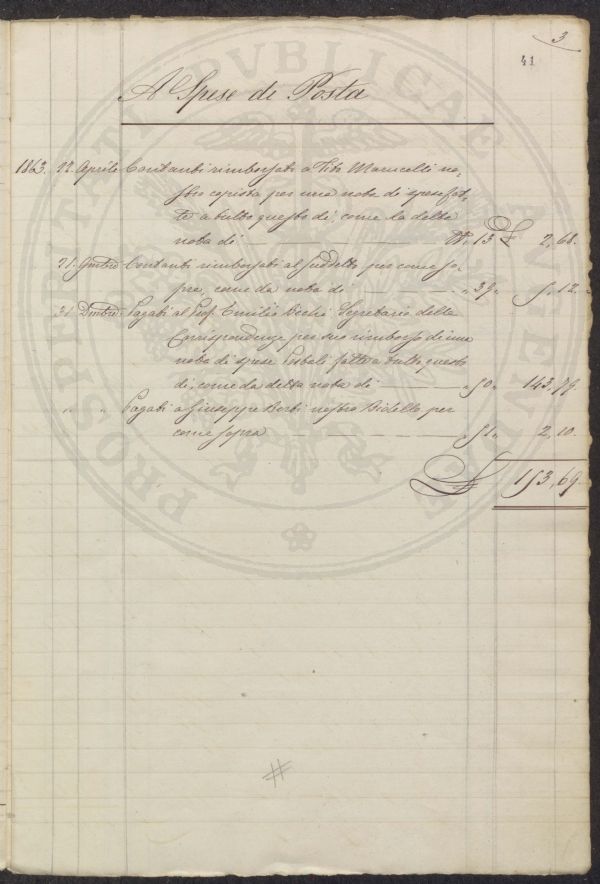 3
41
A Spese di Posta
1863. 22. Aprile Contanti rimborsati a Tito Marucelli no=
stro copista per una nota di spese fat=
te a tutto questo dì, come da detta
nota di N. 13 £ 2,68.
21. Contanti rimborsati al suddetto per come so=
pra, come da nota di " 39 " 5.12. "
31. Dmbre Pagati al Prof. Emilio Bechi Segretario della
Corrispondenza per suo rimborso di una
nota di spese Postali fatte a tutto questo
dì, come da detta nota di " 50 " 143,79
" " Pagati a Giuseppe Berti nostro Bidello per
come sopra " 51 " 2,10.
£ 153,69.
PROSPERITATI PVBLICAE AVGENDAE